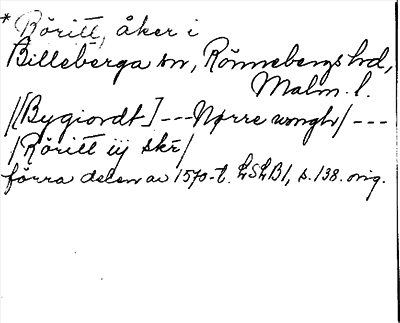 * Röritt, åker i
Billeberga sn, Rönnebergs hd,
Malm. l.
/[Bygiordt] --- Nørre wongh/ ---
/Röritt iij skr/
förra delen av 1570-t. LSLB1, s. 138. orig.